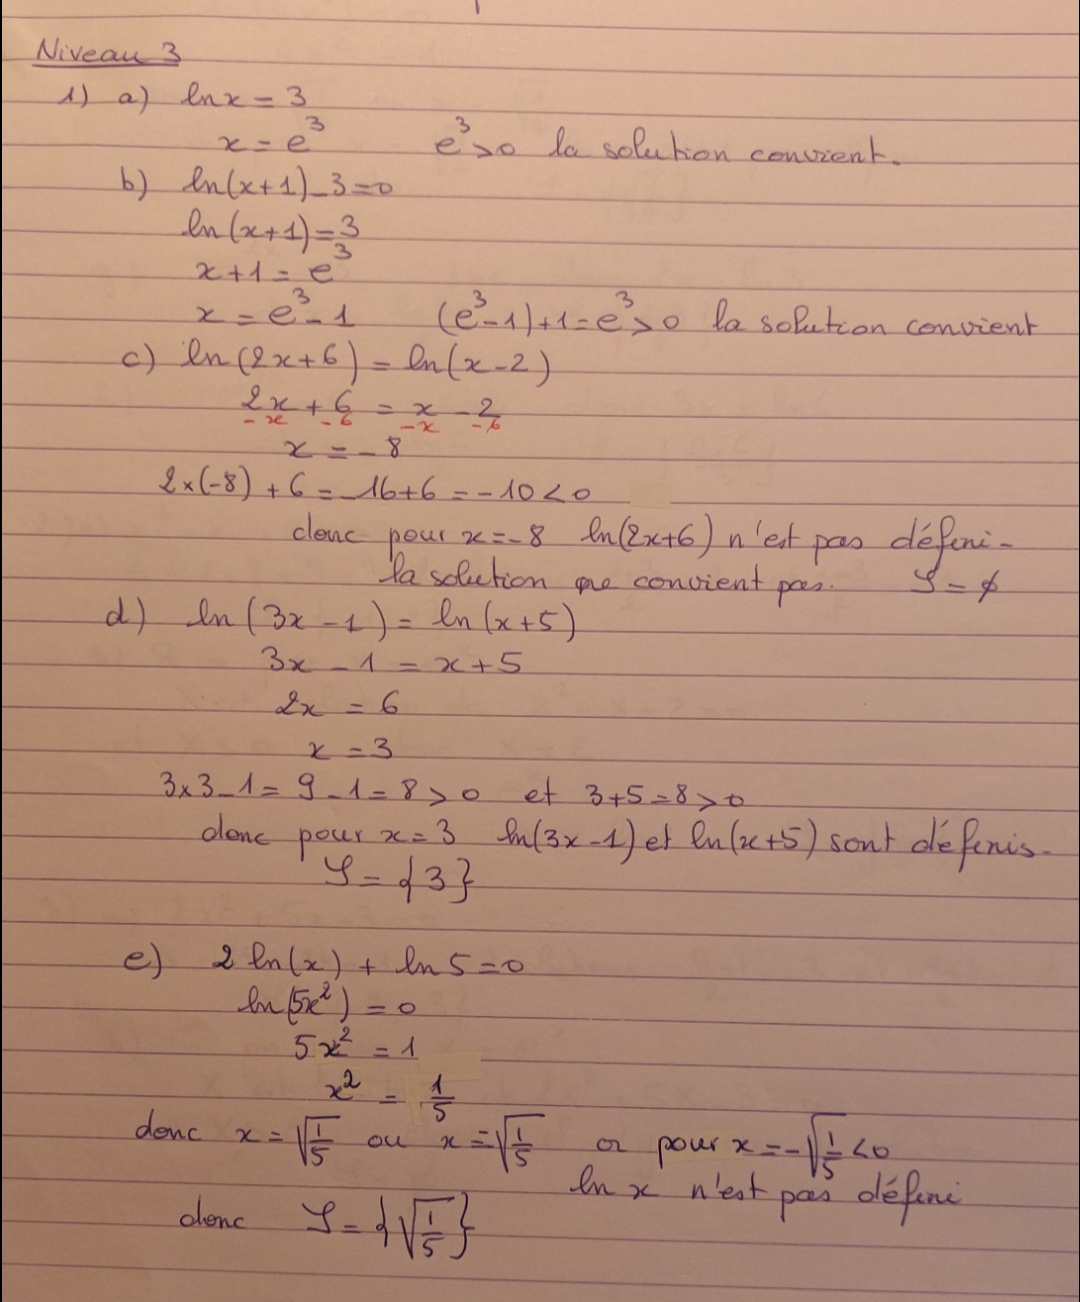 Niveau 3
1) a) ln x = 3
x = e³ e³>0 la solution convient.
b) ln(x+1)-3=0
ln(x+1)=3
x+1 = e³
x = e³-1 (e³-1)+1=e³>0 la solution convient
c) ln(2x+6) = ln(x-2)
2x + 6 = x - 2
-x -6 -x -6
x = -8
2×(-8)+6 = -16+6 = -10<0
donc pour x=-8 ln(2x+6) n'est pas défini-
la solution ne convient pas. S = ∅
d) ln(3x-1) = ln(x+5)
3x - 1 = x+5
2x = 6
x = 3
3×3-1 = 9-1 = 8>0 et 3+5=8>0
donc pour x=3 ln(3x-1) et ln(x+5) sont définis-
S = {3}
e) 2 ln(x) + ln 5=0
ln(5x²) = 0
5x² = 1
x² = 1/5
donc x = √(1/5) ou x = -√(1/5) or pour x = -√(1/5) <0
ln x n'est pas défini
donc S = {√(1/5)}